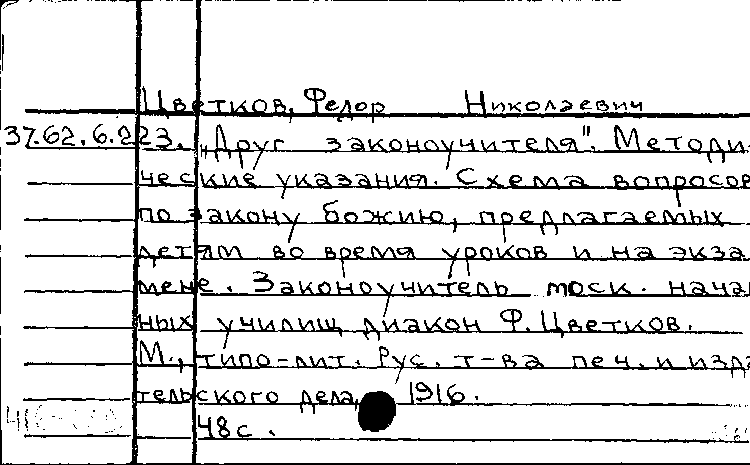 Цветков, Федор Николаевич
37.62.6.223. „Друг законоучителя". Методи-
ческие указания. Схема вопросов
по закону божию, предлагаемых
детям во время уроков и на экза
мене. Законоучитель моск. нача
ных училищ диакон Ф. Цветков.
М., типо-лит. Рус. т-ва печ. и изда
тельского дела, 1916.
48 с.